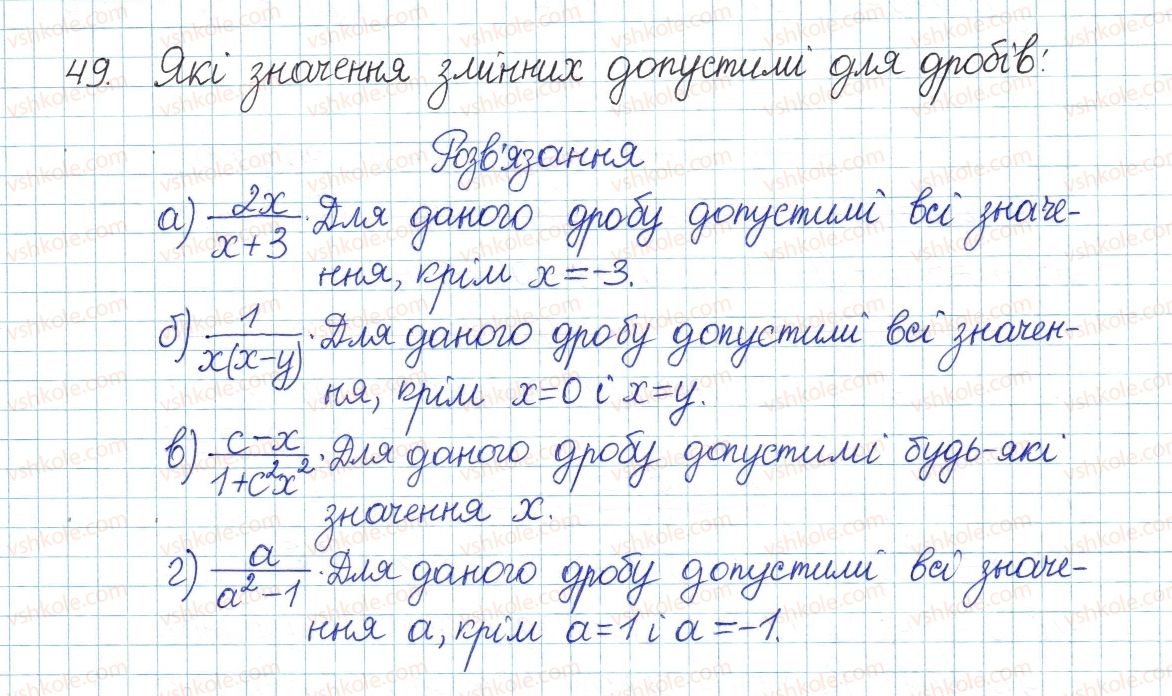 49. Які значення змінних допустимі для дробів:
Розв'язання
а) 2x/(x+3). Для даного дробу допустимі всі значе-
ння, крім x=-3.
б) 1/(x(x-y)). Для даного дробу допустимі всі значен-
ня, крім x=0 і x=y.
в) (c-x)/(1+c²x²). Для даного дробу допустимі будь-які
значення x.
г) a/(a²-1). Для даного дробу допустимі всі значе-
ння a, крім a=1 і a=-1.
vshkole.com